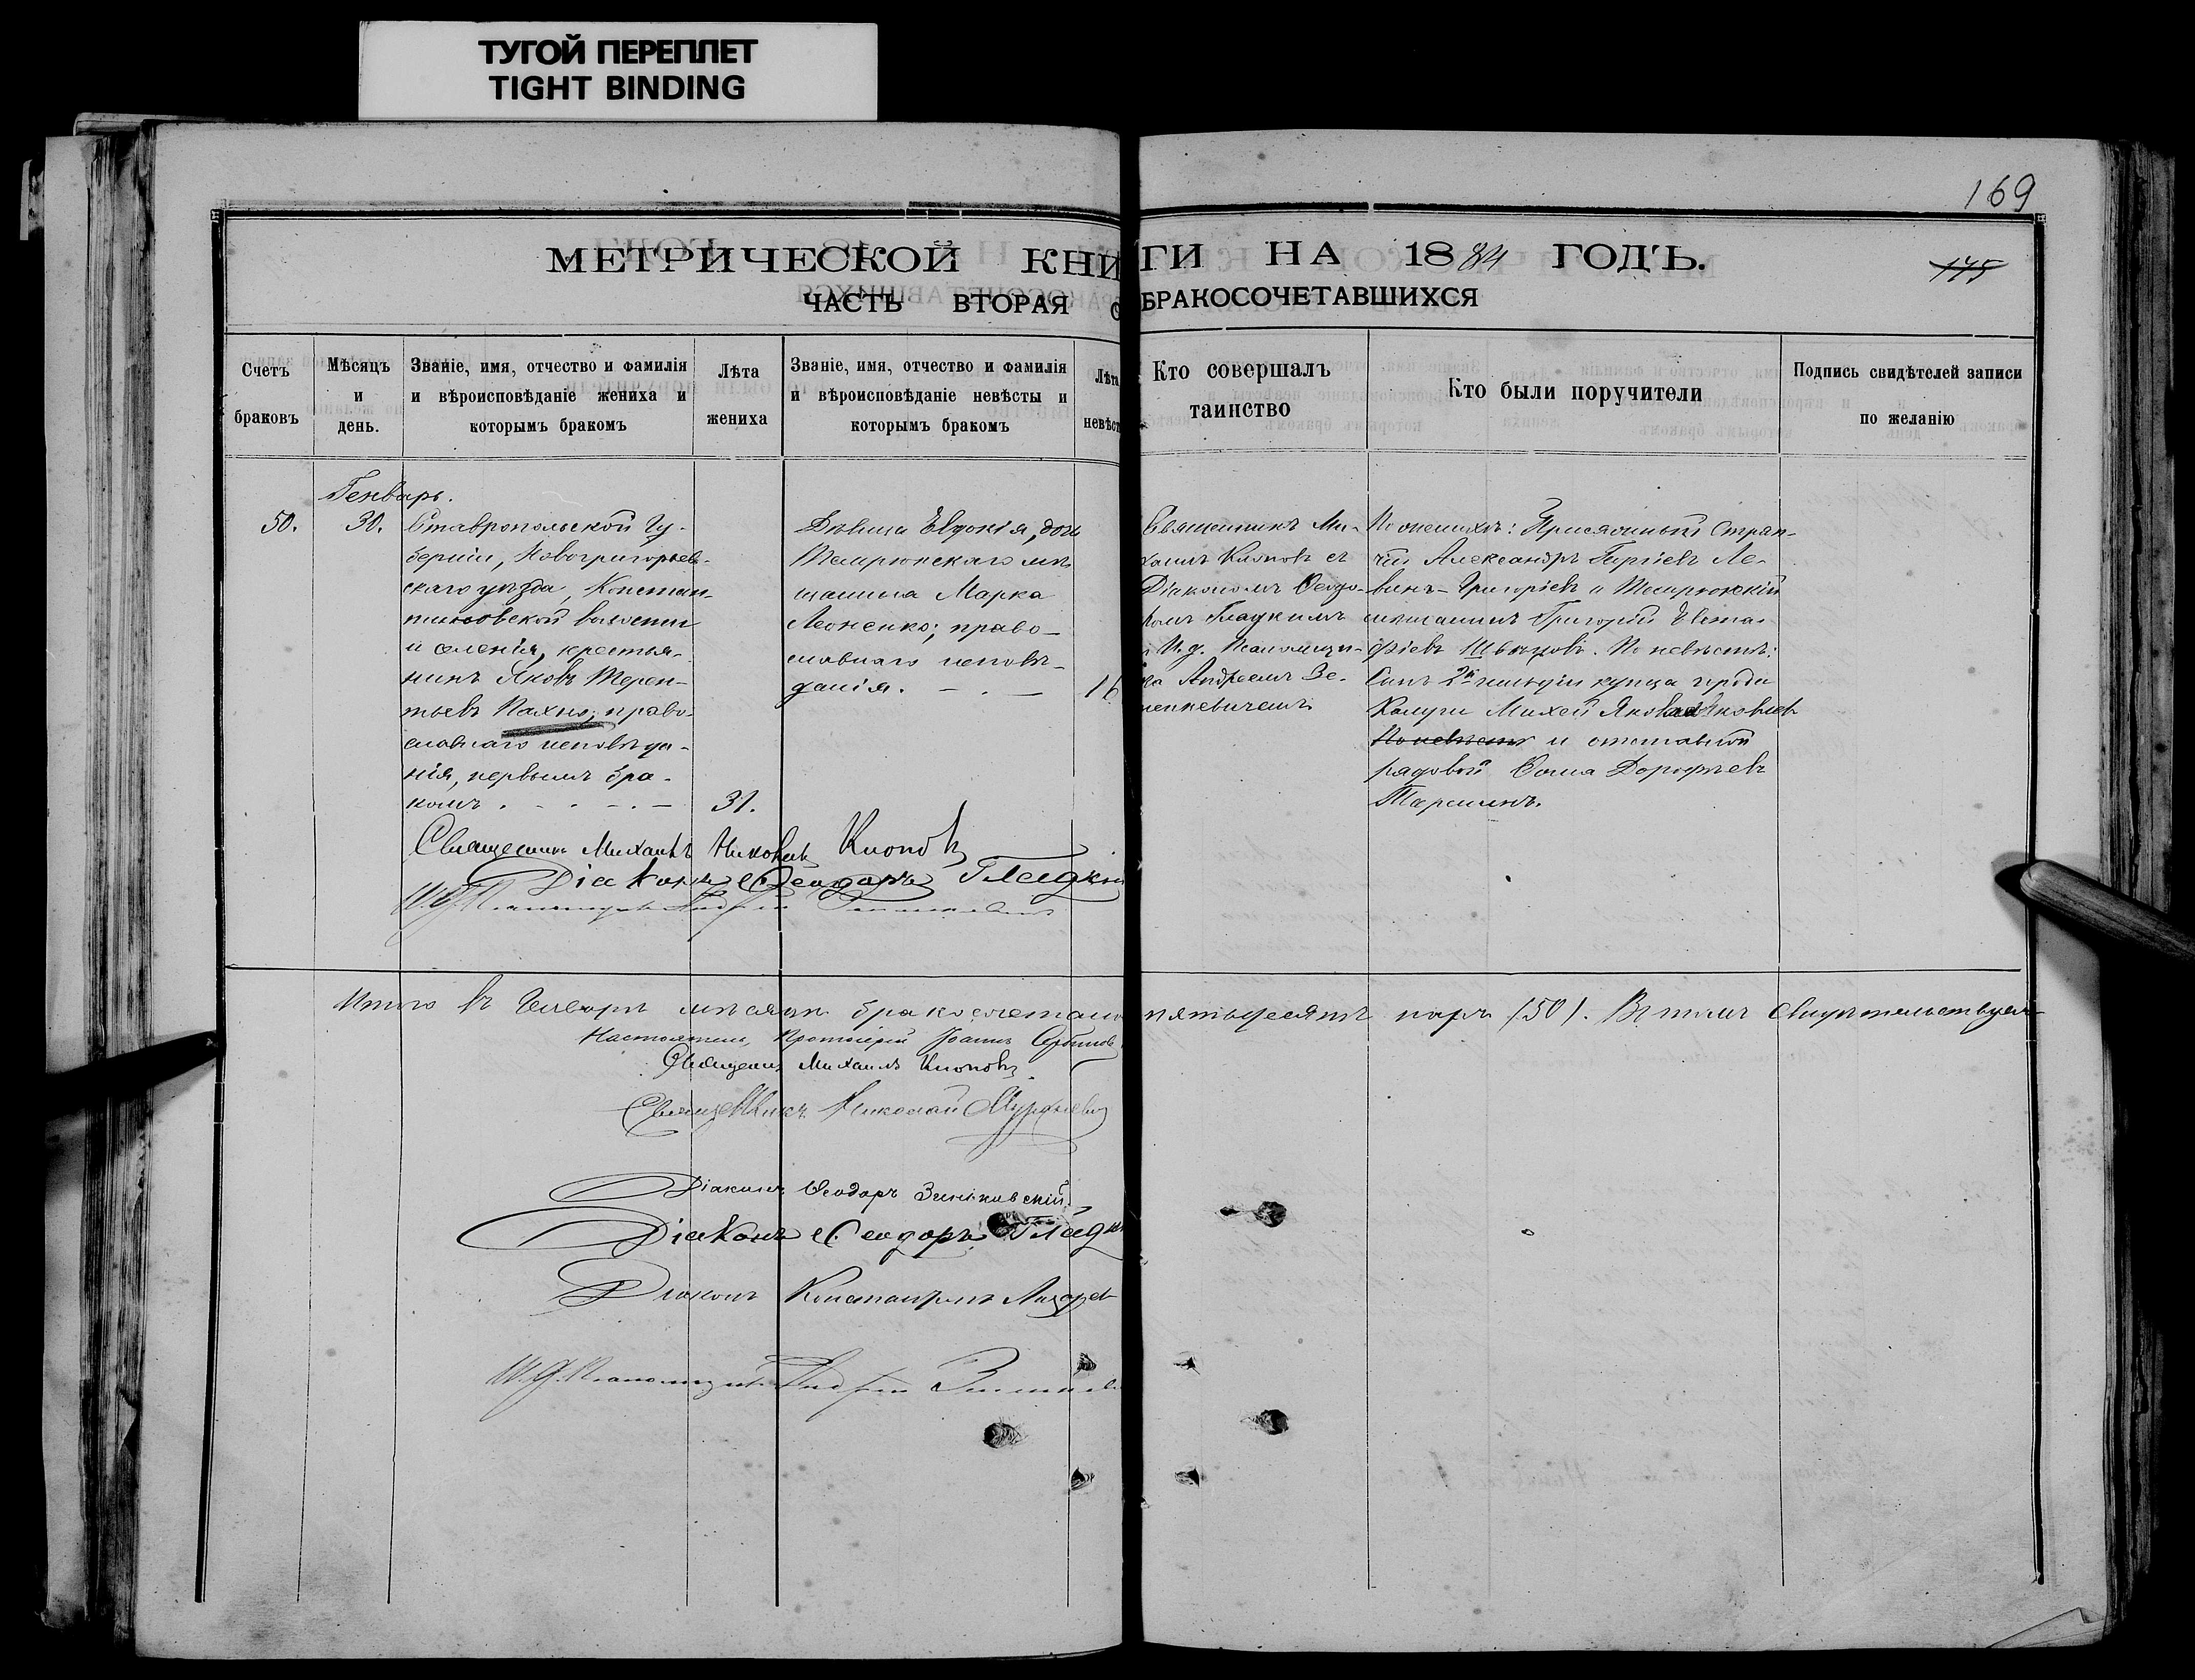 ТУГОЙ ПЕРЕПЛЕТ
TIGHT BINDING
169
МЕТРИЧЕСКОЙ КНИГИ НА 1884 ГОДЪ.
175
ЧАСТЬ ВТОРАЯ О БРАКОСОЧЕТАВШИХСЯ
Счетъ
браковъ
Мѣсяцъ
и
день.
Званіе, имя, отчество и фамилія
и вѣроисповѣданіе жениха и
которымъ бракомъ
Лѣта
жениха
Званіе, имя, отчество и фамилія
и вѣроисповѣданіе невѣсты и
которымъ бракомъ
Лѣта
невѣст
Кто совершалъ
таинство
Кто были поручители
Подпись свидѣтелей записи
по желанію
Генварь.
50.
30.
Ставропольской Гу-
берніи, Новогригорьев-
скаго уѣзда, Констан-
тиновской волости
и селенія, крестья-
нинъ Яковъ Терен-
тьевъ Пахно, право-
славнаго исповѣда-
нія, первымъ бра-
комъ
31.
Дѣвица Евдокія, дочь
Темрюкскаго мѣ-
щанина Марка
Леоненко; право-
славнаго исповѣ-
данія.
16
Священникъ Ми-
хаилъ Клоповъ съ
Діакономъ Ѳеодо-
ромъ Гладкимъ
и И.д. Псаломщи-
ка Андреемъ Зе-
ленкевичемъ
По женихѣ: Присяжный Стряп-
чій Александръ Ле-
винъ-Григорьевъ и Темрюкскій
мѣщанинъ Григорій Евста-
фіевъ Швецовъ. По невѣстѣ:
Сынъ 2й гильдіи купца города
Калуги Михей Яковлевъ
По невѣстѣ и отставной
рядовой Ѳома Дорофѣевъ
Священникъ Михаилъ Клоповъ
Діаконъ Ѳеодоръ Гладкій
И.д. Псаломщика Андрей
Итого въ Генварѣ мѣсяцѣ бракосочетано пятьдесятъ паръ (50). Въ томъ свидѣтельствуемъ
Настоятель, Протоіерей Іоаннъ
Священникъ Михаилъ Клоповъ
Священникъ Николай
Діаконъ Ѳеодоръ Зиньковскій
Діаконъ Ѳеодоръ Гладк
Діаконъ Константинъ
И.д. Псаломщика Андрей